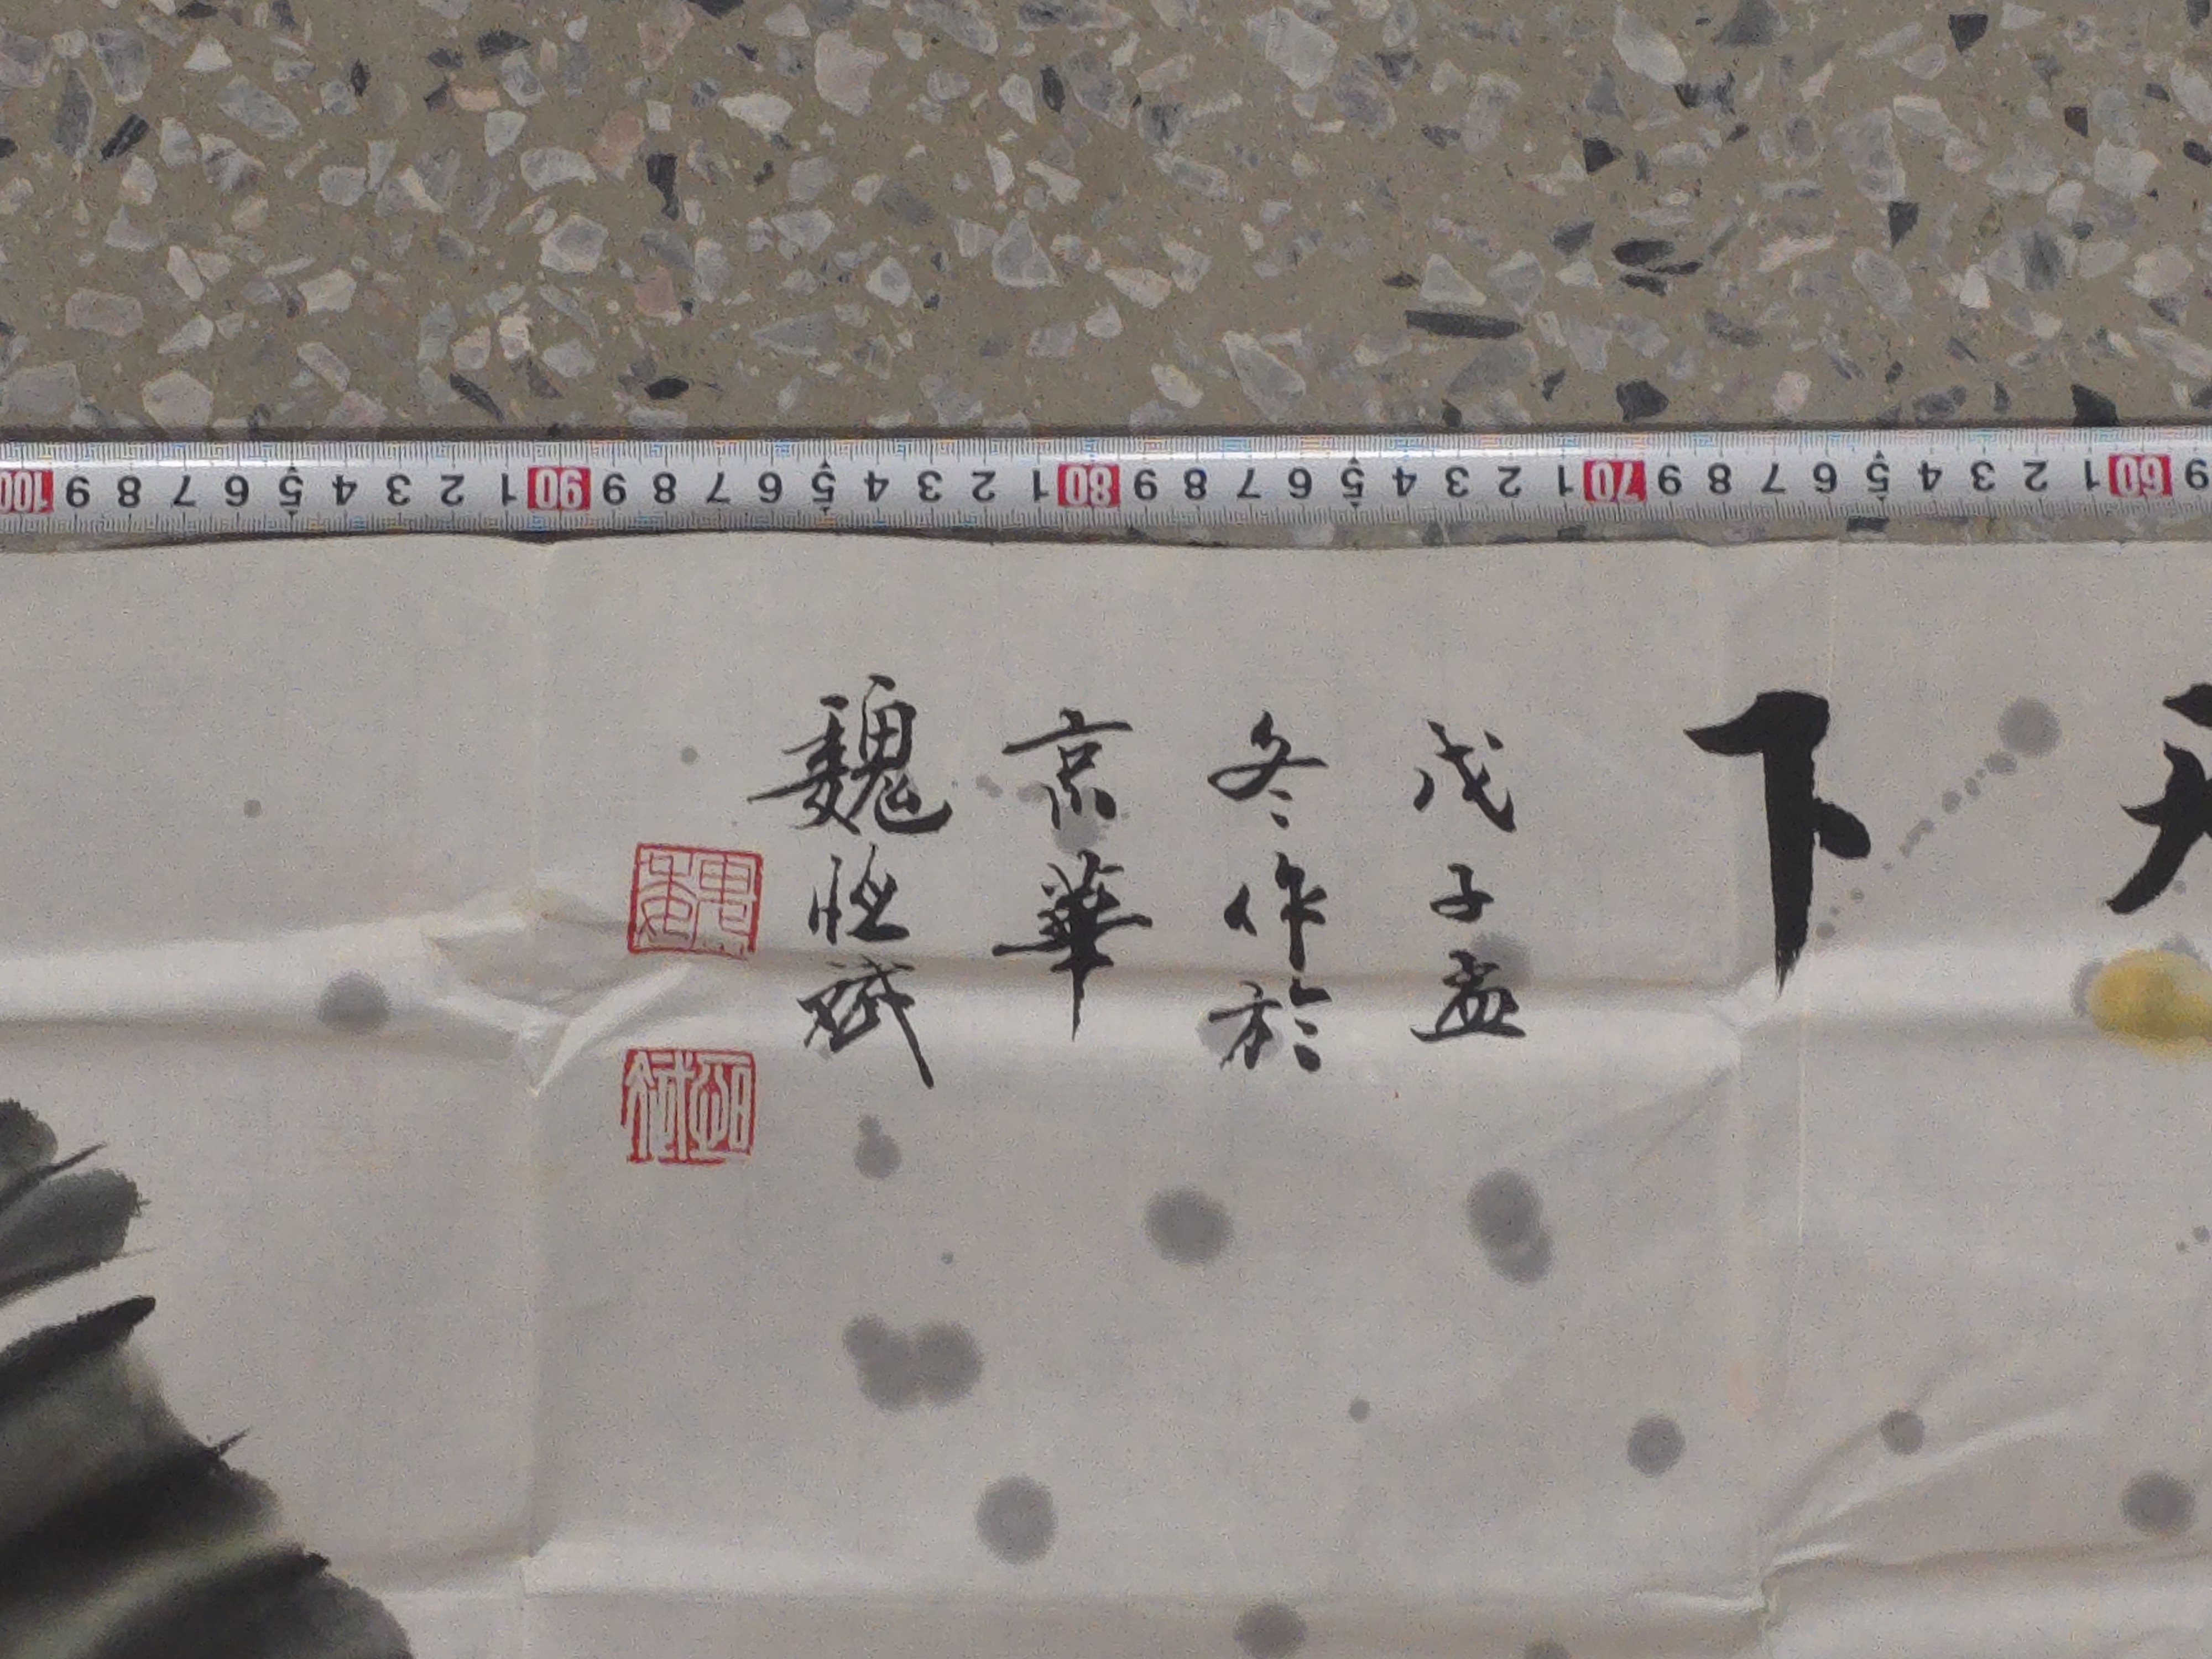 9 60 1 2 3 4 5 6 7 8 9 70 1 2 3 4 5 6 7 8 9 80 1 2 3 4 5 6 7 8 9 90 1 2 3 4 5 6 7 8 9 100
下
戊子孟
冬作於
京華
魏恒斌